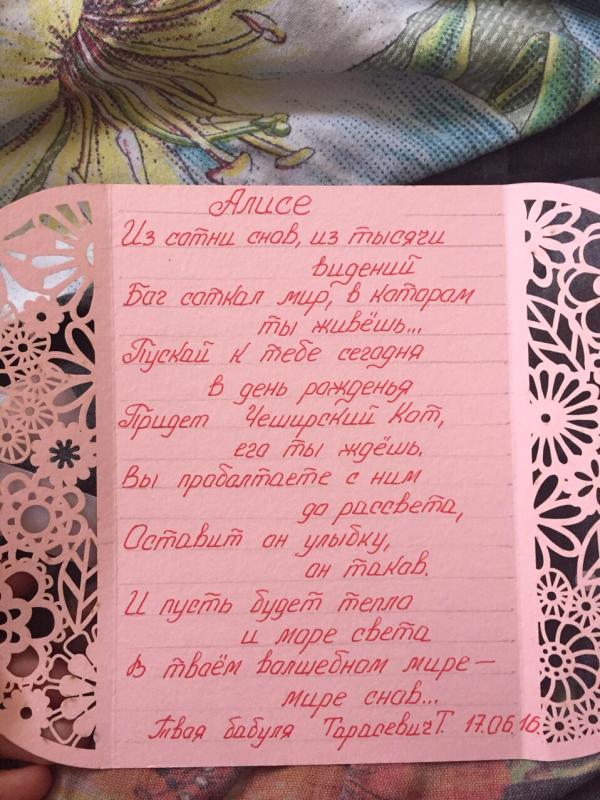 Алисе
Из сотни снов, из тысячи
видений
Бог соткал мир, в котором
ты живёшь...
Пускай к тебе сегодня
в день рожденья
Придет Чеширский Кот,
его ты ждёшь.
Вы проболтаете с ним
до рассвета,
Оставит он улыбку,
он таков.
И пусть будет тепло
и море света
в твоём волшебном мире—
мире снов...
Твоя бабуля Тарасевич Т. 17.06.16.